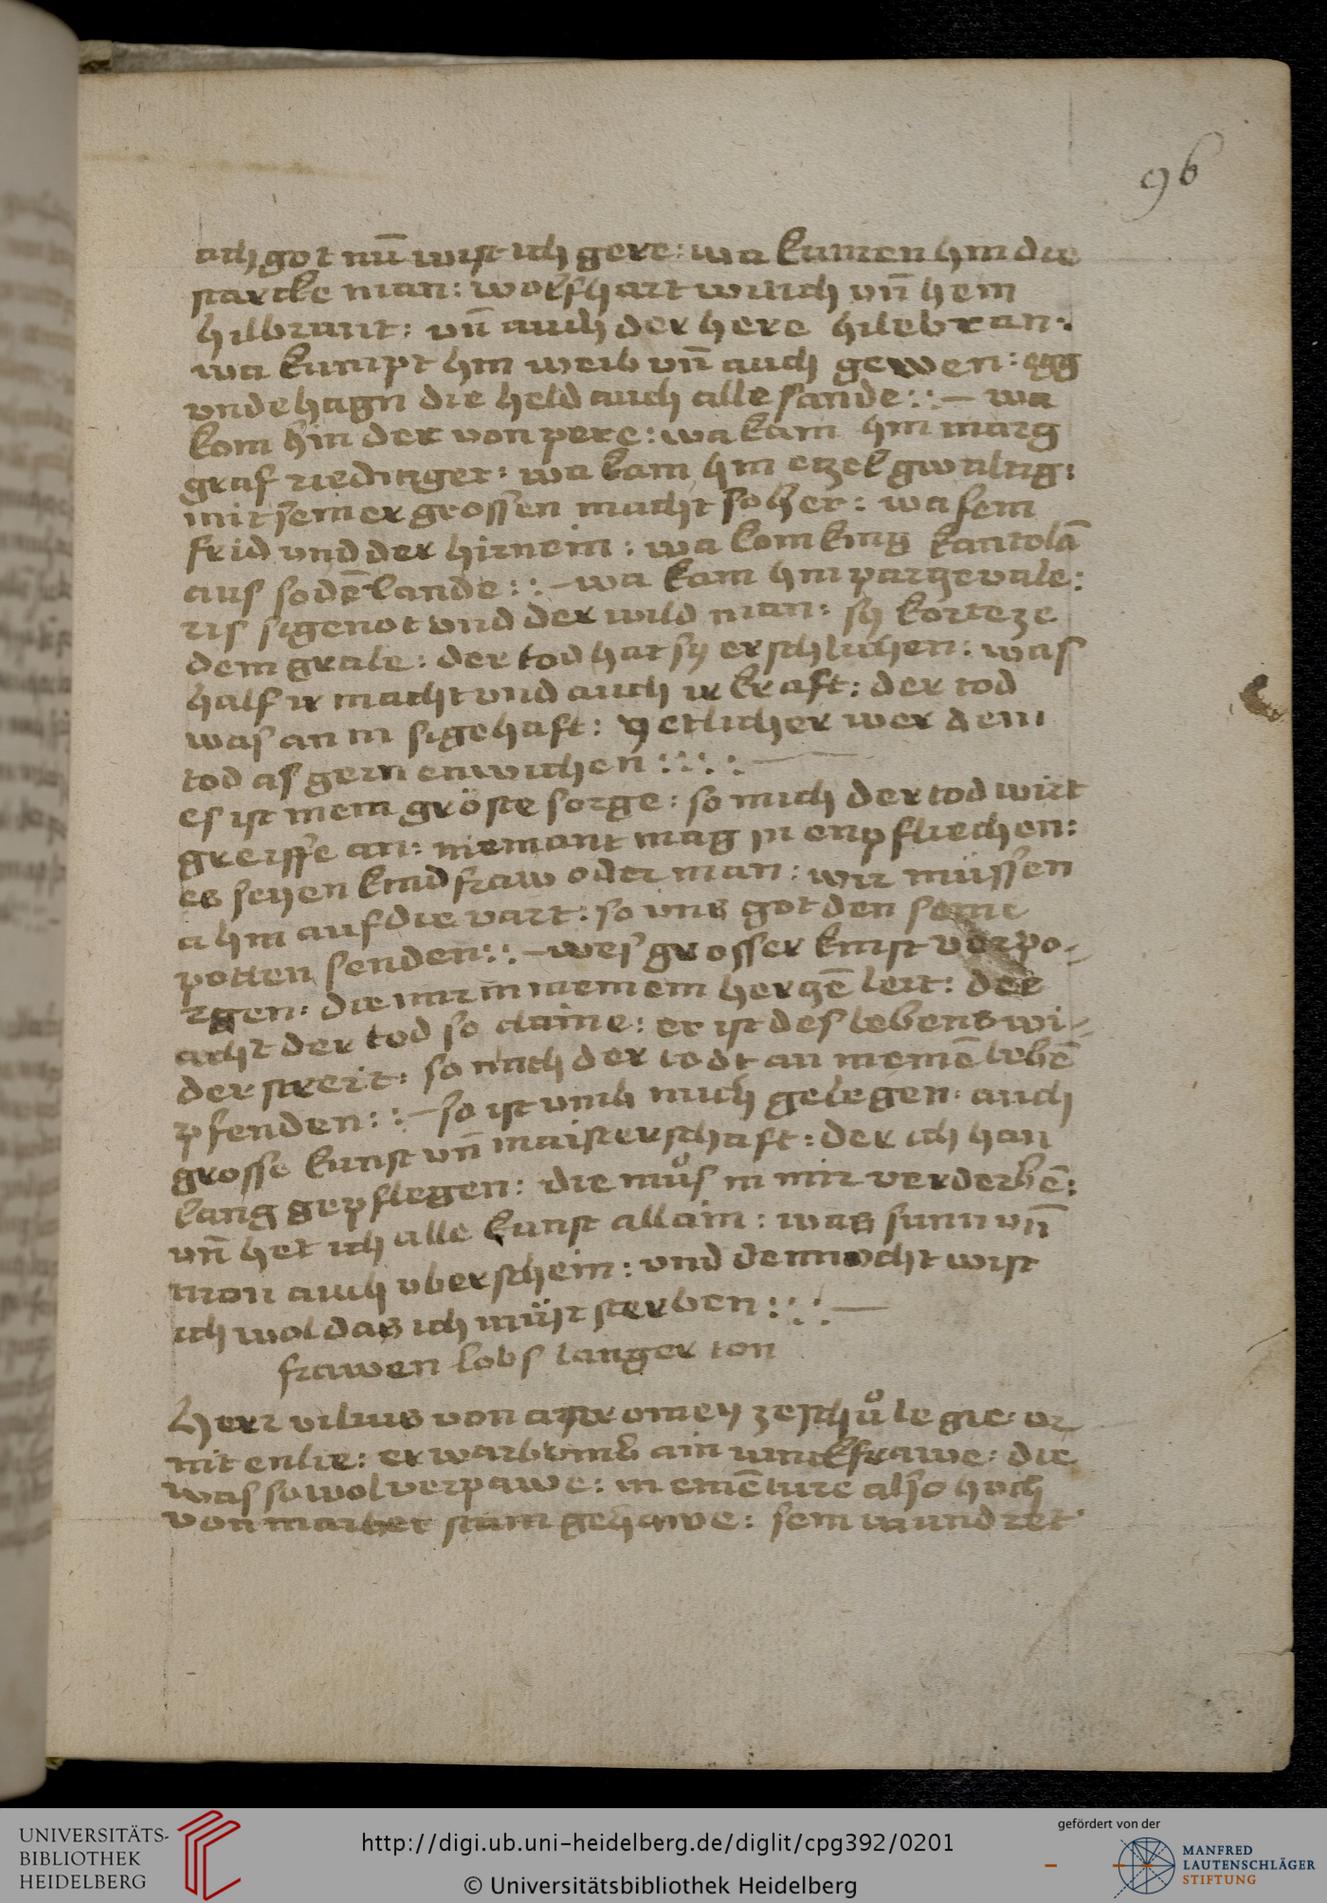 96
ach got nū wist ich gere: wa kumen hin die
starcke man: wolfhart witich vn̄ hem
hilbrant: vn̄ auch der here hilebran:
wa kumpt hin weib vn̄ auch gewen: egg
vnde hagn die held auch alle sande: : – wa
kom hin der von pere: wa kam hin marg
graf riedinger: wa kam hin etzel gwaltig:
mit seiner grossen macht so her: wa sem
frid vnd der hirnein: wa kom king kantolā
aus so dē lande: : – wa kam hin partzevale:
ris sigenot vnd der wild man: sÿ korteze
dem grale: der tod hat sÿ erschlichen: was
half ir macht vnd auch ir kraft: der tod
was an in sigehaft: yetlicher wer dem
tod as gern entwichen : : : : —
es ist mein gröste sorge: so mich der tod wirt
greiffe an: niemant mag in enpfliechen:
es seyen kind fraw oder man: wir müssen
a hin auf die vart: so vns got den seine
potten senden: : – weis grosser kunst verpo-
rgen: die mir in meinem hertzē leit: der
acht der tod so claine: er ist des lebens wi-
derstreit: so mich der todt an meinē lebē
pfenden: : – so ist vmb mich gelegen: auch
grosse kunst vn̄ maisterschaft: der ich han
lang gepflegen: die muͦs in mir verderbē:
vn̄ het ich alle kunst allain: was sunn vn̄
mon auch vberschein: vnd dennocht wist
ich wol das ich müst sterben : : : —
frawen lobs langer ton
Herr vilius von astromey ze schuͦle gie: er
nit enlie: er warb vmb ain iunckfrawe: die
was so wol verpawe: in einē ture also hoch
von marbet stain gehawe: sein wund ret
UNIVERSITÄTS-
BIBLIOTHEK
HEIDELBERG
http://digi.ub.uni-heidelberg.de/diglit/cpg392/0201
© Universitätsbibliothek Heidelberg
gefördert von der
MANFRED
LAUTENSCHLÄGER
STIFTUNG